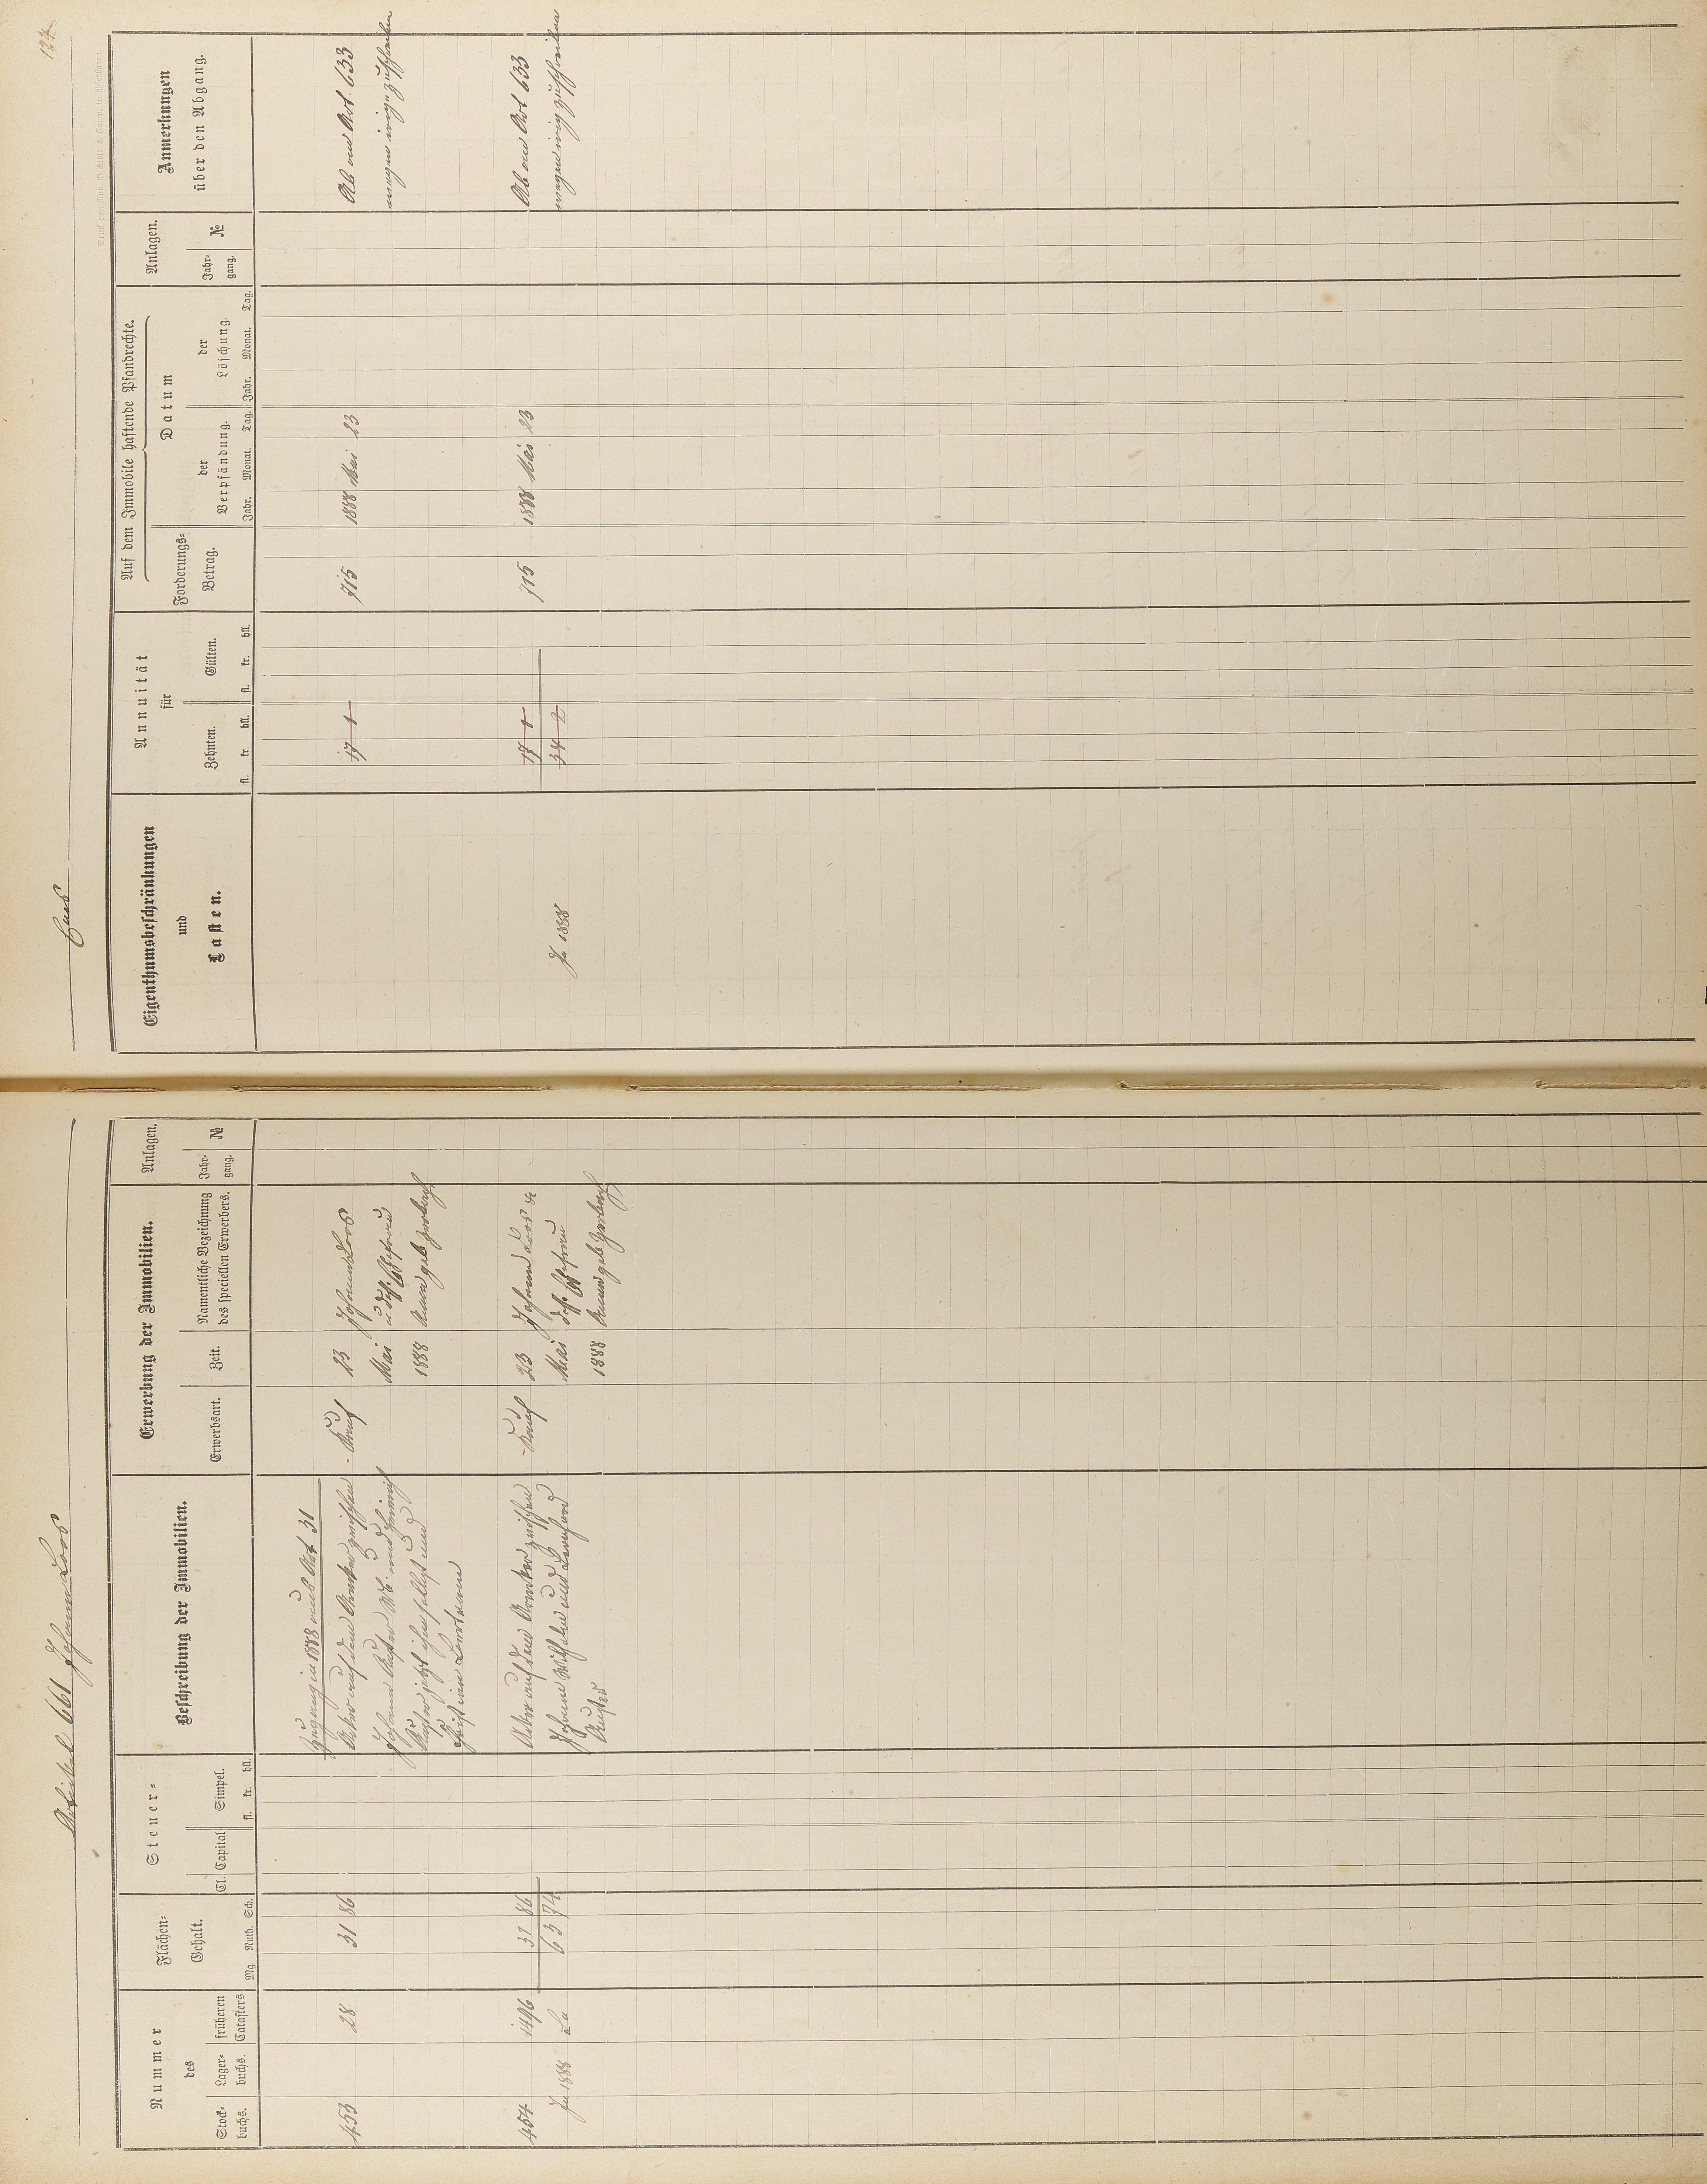 Artikel 661 Johann Loos
Nummer
des
Stock-
buchs.
Lager-
buchs.
früheren
Catasters
Flächen-
Gehalt.
Mg. Ruth. Sch.
Steuer-
Cl. Capital
Simpel.
fl. kr. hll.
Beschreibung der Immobilien.
Erwerbung der Immobilien.
Erwerbsart.
Zeit.
Namentliche Bezeichnung
des speciellen Erwerbers.
Anlagen.
Jahr-
gang.
№
Zugang in 1888 aus Art 31
453 28 31 86 Acker auf dem zwischen Kauf 23 Johann Loos
Johann und Heinrich Mai u. dess. Ehefrau
jetzt ihm selbst und 1888 Anna geb.
454 1496 31 86 Acker auf dem zwischen Kauf 23 Johann Loos &
Johann Wilhelm und Mai dess. Ehefrau
1888 Anna geb.
In 1888 La 63 74
124
Eigenthumsbeschränkungen
und
Lasten.
Annuität
für
Zehnten.
fl. kr. hll.
Gülten.
fl. kr. hll.
Auf dem Immobile haftende Pfandrechte.
Forderungs-
Betrag.
Datum
der
Verpfändung.
Jahr. Monat. Tag.
der
Löschung.
Jahr. Monat. Tag.
Anlagen.
Jahr-
gang.
№
Anmerkungen
über den Abgang.
17 1 715 1888 Mai 23 Ab an Art. 633
wegen irrig
17 1 715 1888 Mai 23 Ab an Art 633
wegen irrig
In 1888 34 2